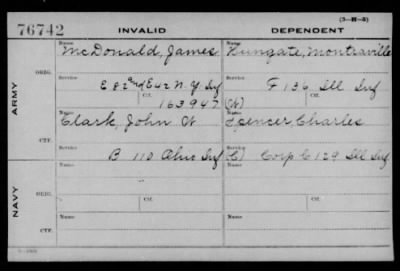 (3-H-3)
76742
INVALID
DEPENDENT
Name
McDonald, James
Name
Hungate, Montraville
ARMY
ORIG.
Service
E 82nd E 42 N.Y. Inf
Service
F 136 Ill Inf
Ctf.
163947
Ctf.
(W)
CTF.
Name
Clark, John W
Name
Spencer, Charles
Service
B 110 Ohio Inf
Service
(C) Corp C 129 Ill Inf
NAVY
ORIG.
Name
Name
Service
Ctf.
Service
Ctf.
CTF.
Name
Name